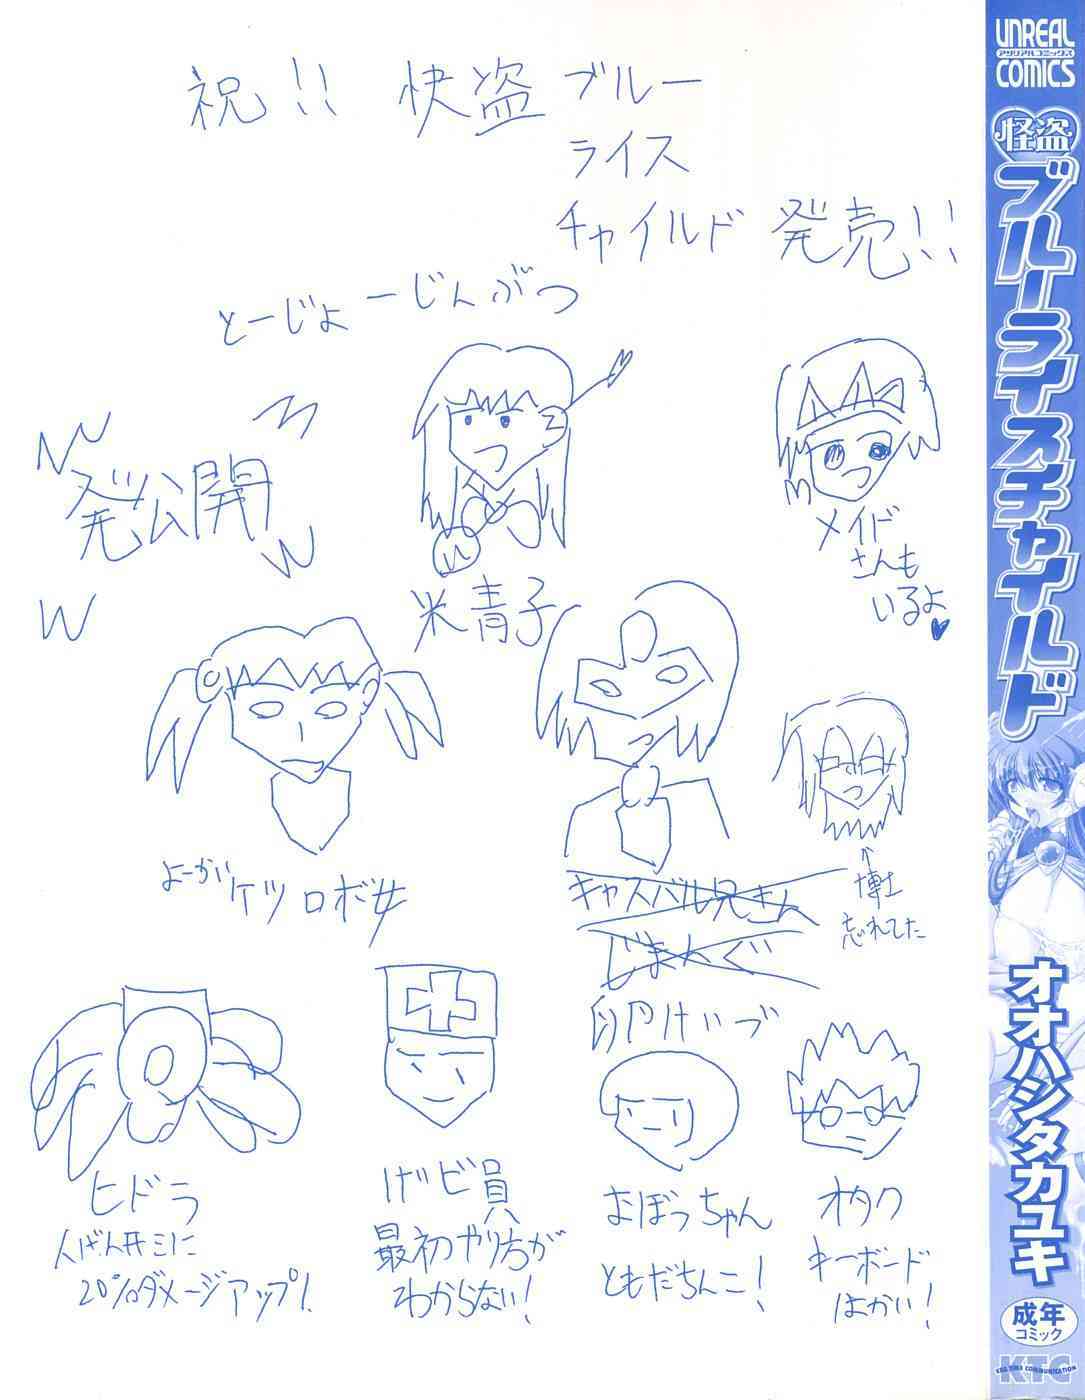 祝!! 快盗ブルー
ライス
チャイルド 発売!!
とーじょーじんぶつ
発公開
米青子
メイド
さんも
いるよ♥
よーがい ケツロボ女
キャスバル兄さん
じまんぐ
博士
忘れてた
ヒドラ
20%ダメージアップ!
員
最初やり方が
わからない!
おぼっちゃん
ともだちんこ!
オタク
キーボード
はかい!
UNREAL
アンリアルコミックス
COMICS
怪盗
ブルーライスチャイルド
オオハシタカユキ
成年
コミック
KTC
KILL TIME COMMUNICATION